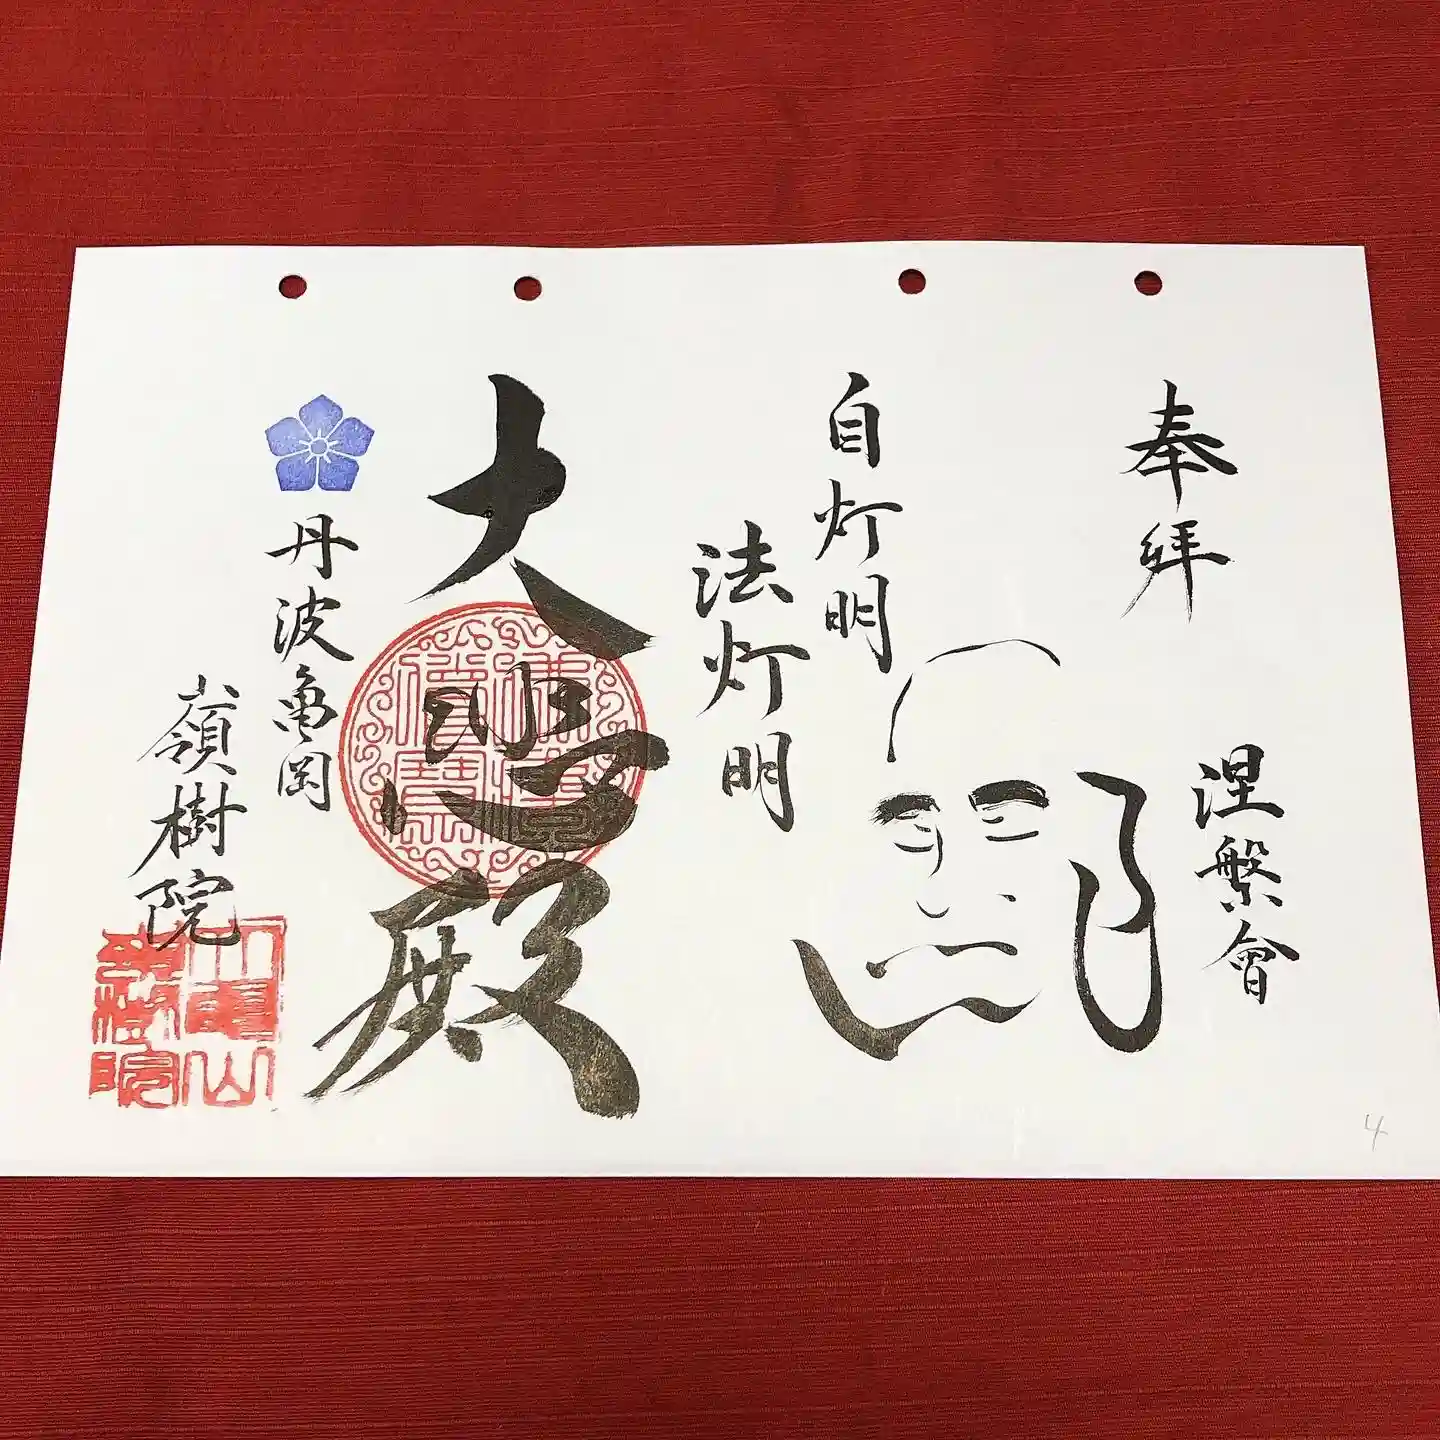 奉拝
涅槃會
自灯明
法灯明
大悲殿
丹波亀岡
嶺樹院
4